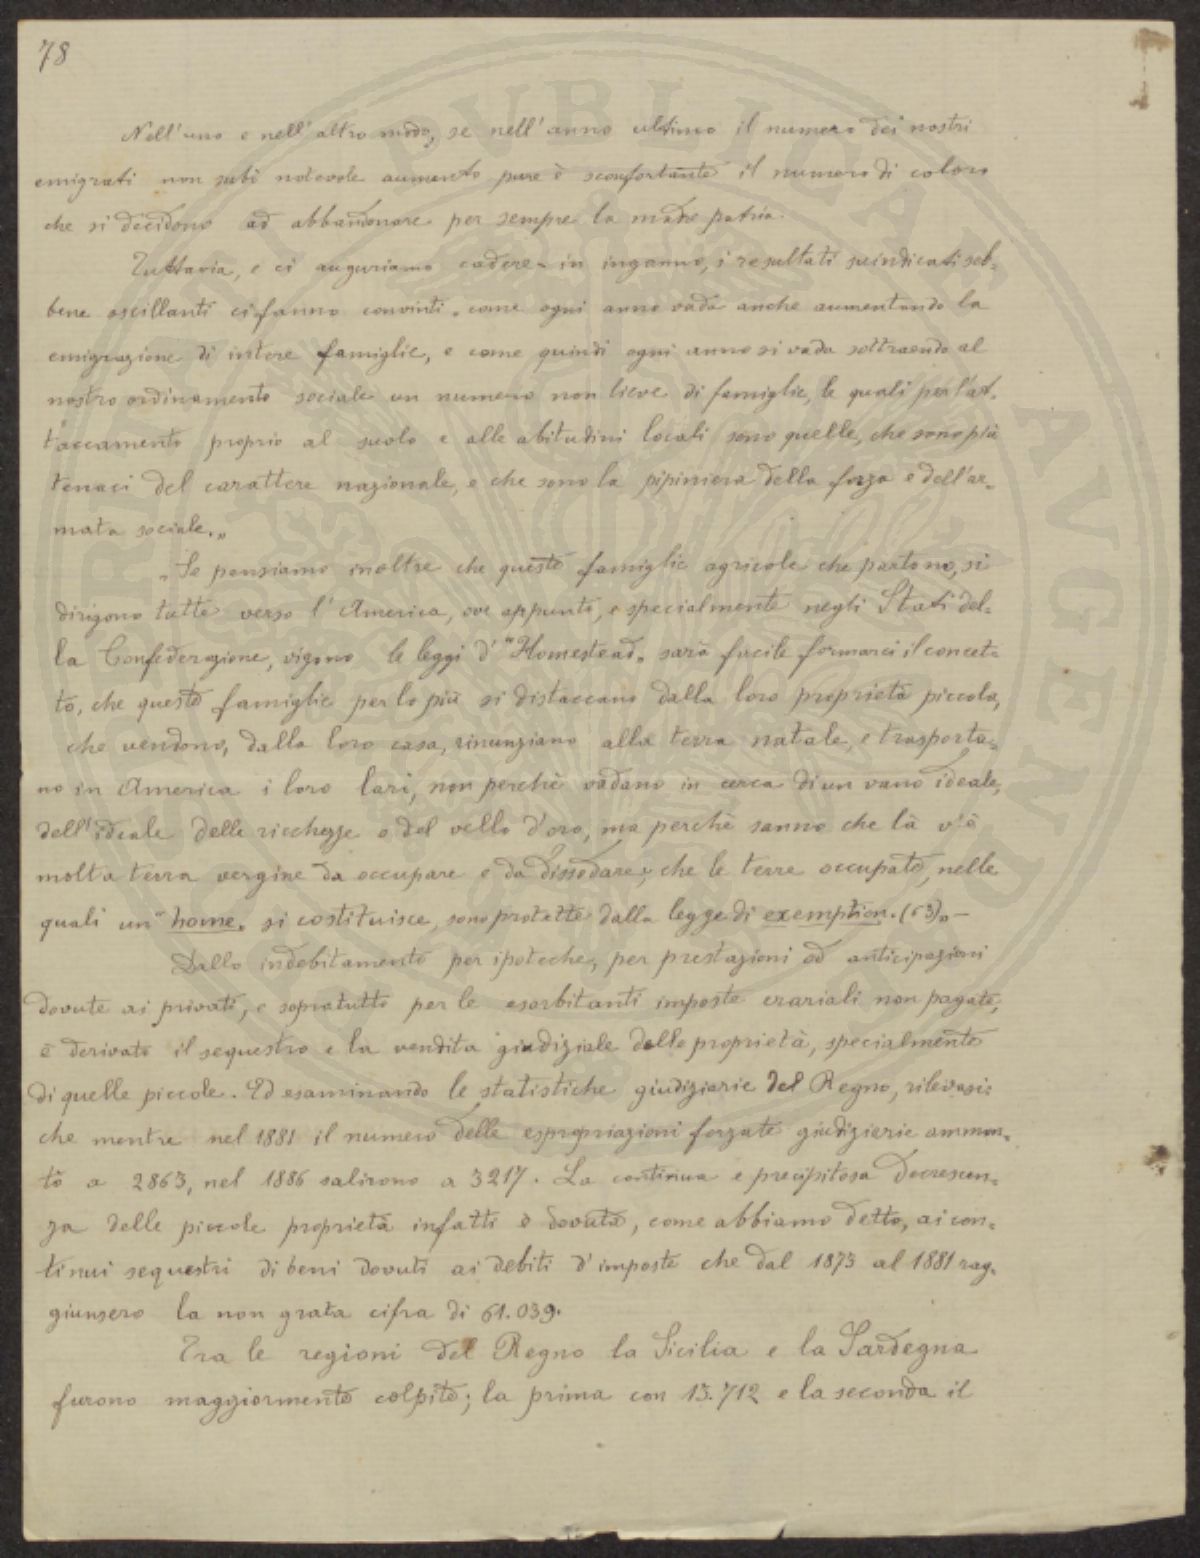 78
Nell'uno e nell'altro modo, se nell'anno ultimo il numero dei nostri
emigrati non subì notevole aumento pure è sconfortante il numero di coloro
che si decidono ad abbandonare per sempre la madre patria.
Tuttavia, e ci auguriamo cadere in inganno, i resultati suindicati seb-
bene oscillanti ci fanno convinti "come ogni anno vada anche aumentando la
emigrazione di intere famiglie, e come quindi ogni anno si vada sottraendo al
nostro ordinamento sociale un numero non lieve di famiglie, le quali per l'at-
taccamento proprio al suolo e alle abitudini locali sono quelle, che sono più
tenaci del carattere nazionale, e che sono la pipiniera della forza e dell'ar-
mata sociale."
"Se pensiamo inoltre che queste famiglie agricole che partono, si
dirigono tutte verso l'America, ove appunto, e specialmente negli Stati del-
la Confederazione, vigono le leggi d'"Homestead" sarà facile formarci il concet-
to, che queste famiglie per lo più si distaccano dalla loro proprietà piccola,
che vendono, dalla loro casa, rinunziano alla terra natale, e trasporta-
no in America i loro lari, non perchè vadano in cerca di un vano ideale,
dell'ideale delle ricchezze o del vello d'oro, ma perchè sanno che là v'è
molta terra vergine da occupare e da dissodare; che le terre occupate, nelle
quali un "home" si costituisce, sono protette dalla legge di exemption. (63)" —
Dallo indebitamento per ipoteche, per prestazioni od anticipazioni
dovute ai privati, e sopratutto per le esorbitanti imposte erariali non pagate,
è derivato il sequestro e la vendita giudiziale delle proprietà, specialmente
di quelle piccole. Ed esaminando le statistiche giudiziarie del Regno, rilevasi:
che mentre nel 1881 il numero delle espropriazioni forzate giudizierie ammon-
tò a 2863, nel 1886 salirono a 3217. La continua e precipitosa decrescen-
za delle piccole proprietà infatti è dovuta, come abbiamo detto, ai con-
tinui sequestri di beni dovuti ai debiti d'imposte che dal 1873 al 1881 rag-
giunsero la non grata cifra di 61.039.
Tra le regioni del Regno la Sicilia e la Sardegna
furono maggiormente colpite; la prima con 13.712 e la seconda il